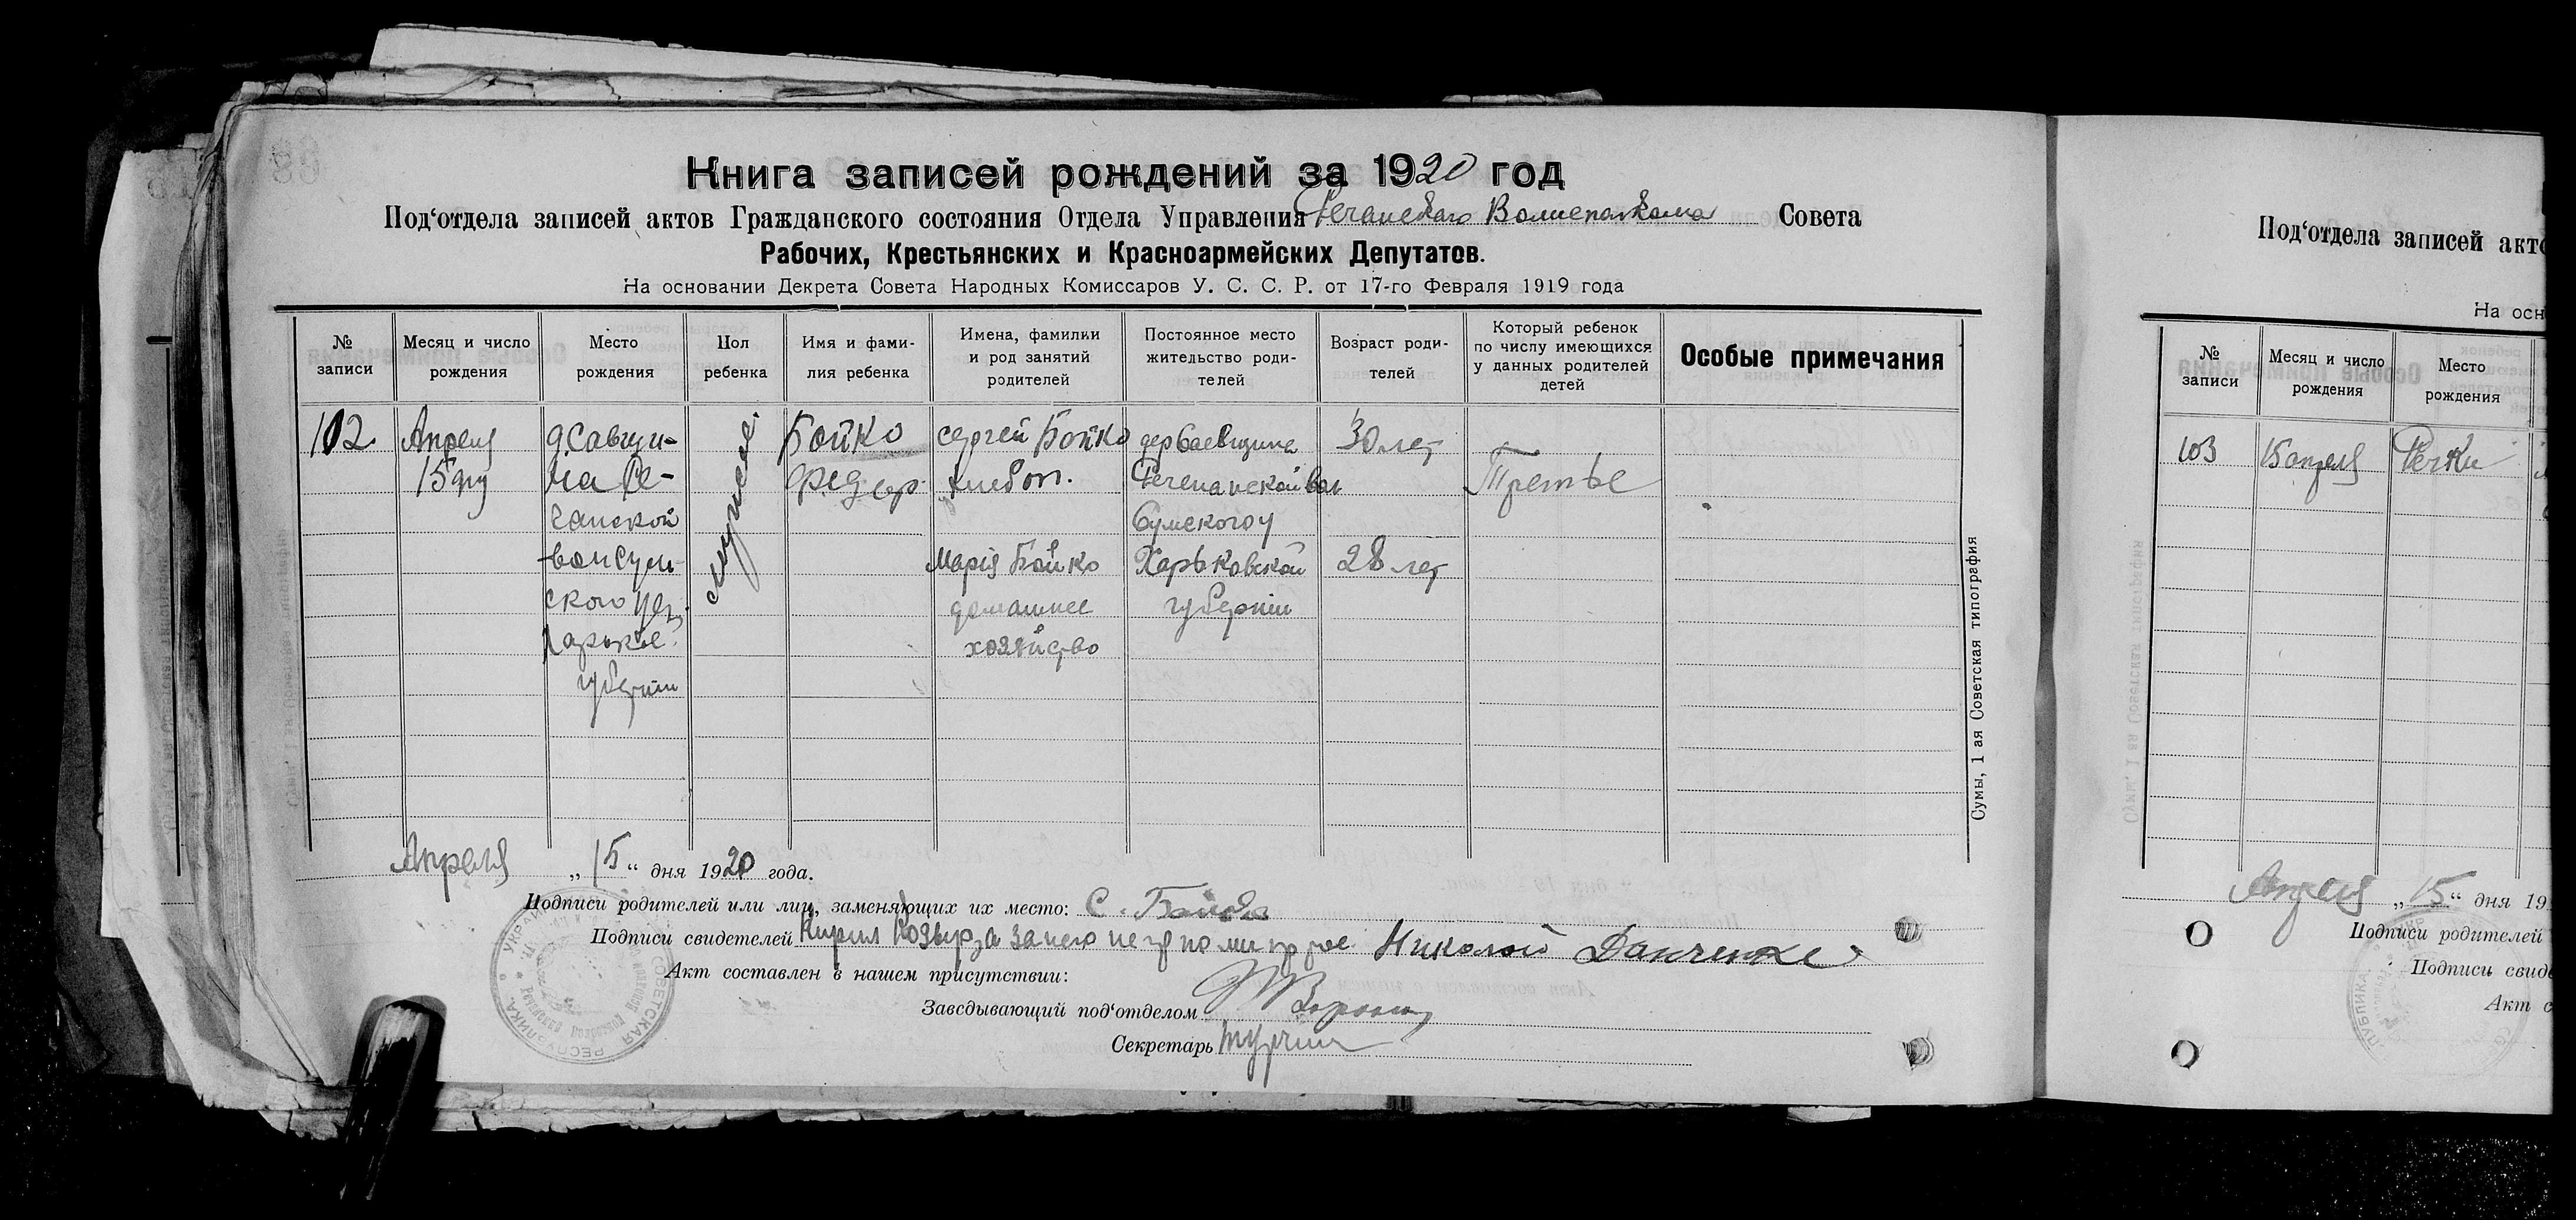 Книга записей рождений за 1920 год
Под‘отдела записей актов Гражданского состояния Отдела Управления Речанского Волисполкома Совета
Рабочих, Крестьянских и Красноармейских Депутатов.
На основании Декрета Совета Народных Комиссаров У. С. С. Р. от 17-го Февраля 1919 года
№ записи
Месяц и число рождения
Место рождения
Пол ребенка
Имя и фами-
лия ребенка
Имена, фамилии
и род занятий
родителей
Постоянное место
жительство роди-
телей
Возраст роди-
телей
Который ребенок
по числу имеющихся
у данных родителей
детей
Особые примечания
102
Апреля
15 дня
д. Савщи-
на Ре-
чанской
вол Сум-
ского уез.
Харьков.
губернии
мужеское
Бойко
Федор
Сергей Бойко
хлебоп.
Марія Бойко
домашнее
хозяйство
дер Савщина
Речанской вол
Сумского у
Харьковской
губерніи
30 лет
28 лет
Третье
Сумы, 1 ая Советская типография
Апреля „15“ дня 1920 года.
Подписи родителей или лиц, заменяющих их место: С. Бойко
Подписи свидетелей Кирил Николай Данченко
Акт составлен в нашем присутствии:
Заведывающий под‘отделом
Секретарь
Под‘отдела записей акто
На осн
№ записи
Месяц и число
рождения
Место
рождения
103
15 апреля
Речки
Апреля „15“ дня 19
Подписи родителей
Подписи свиде
Акт с